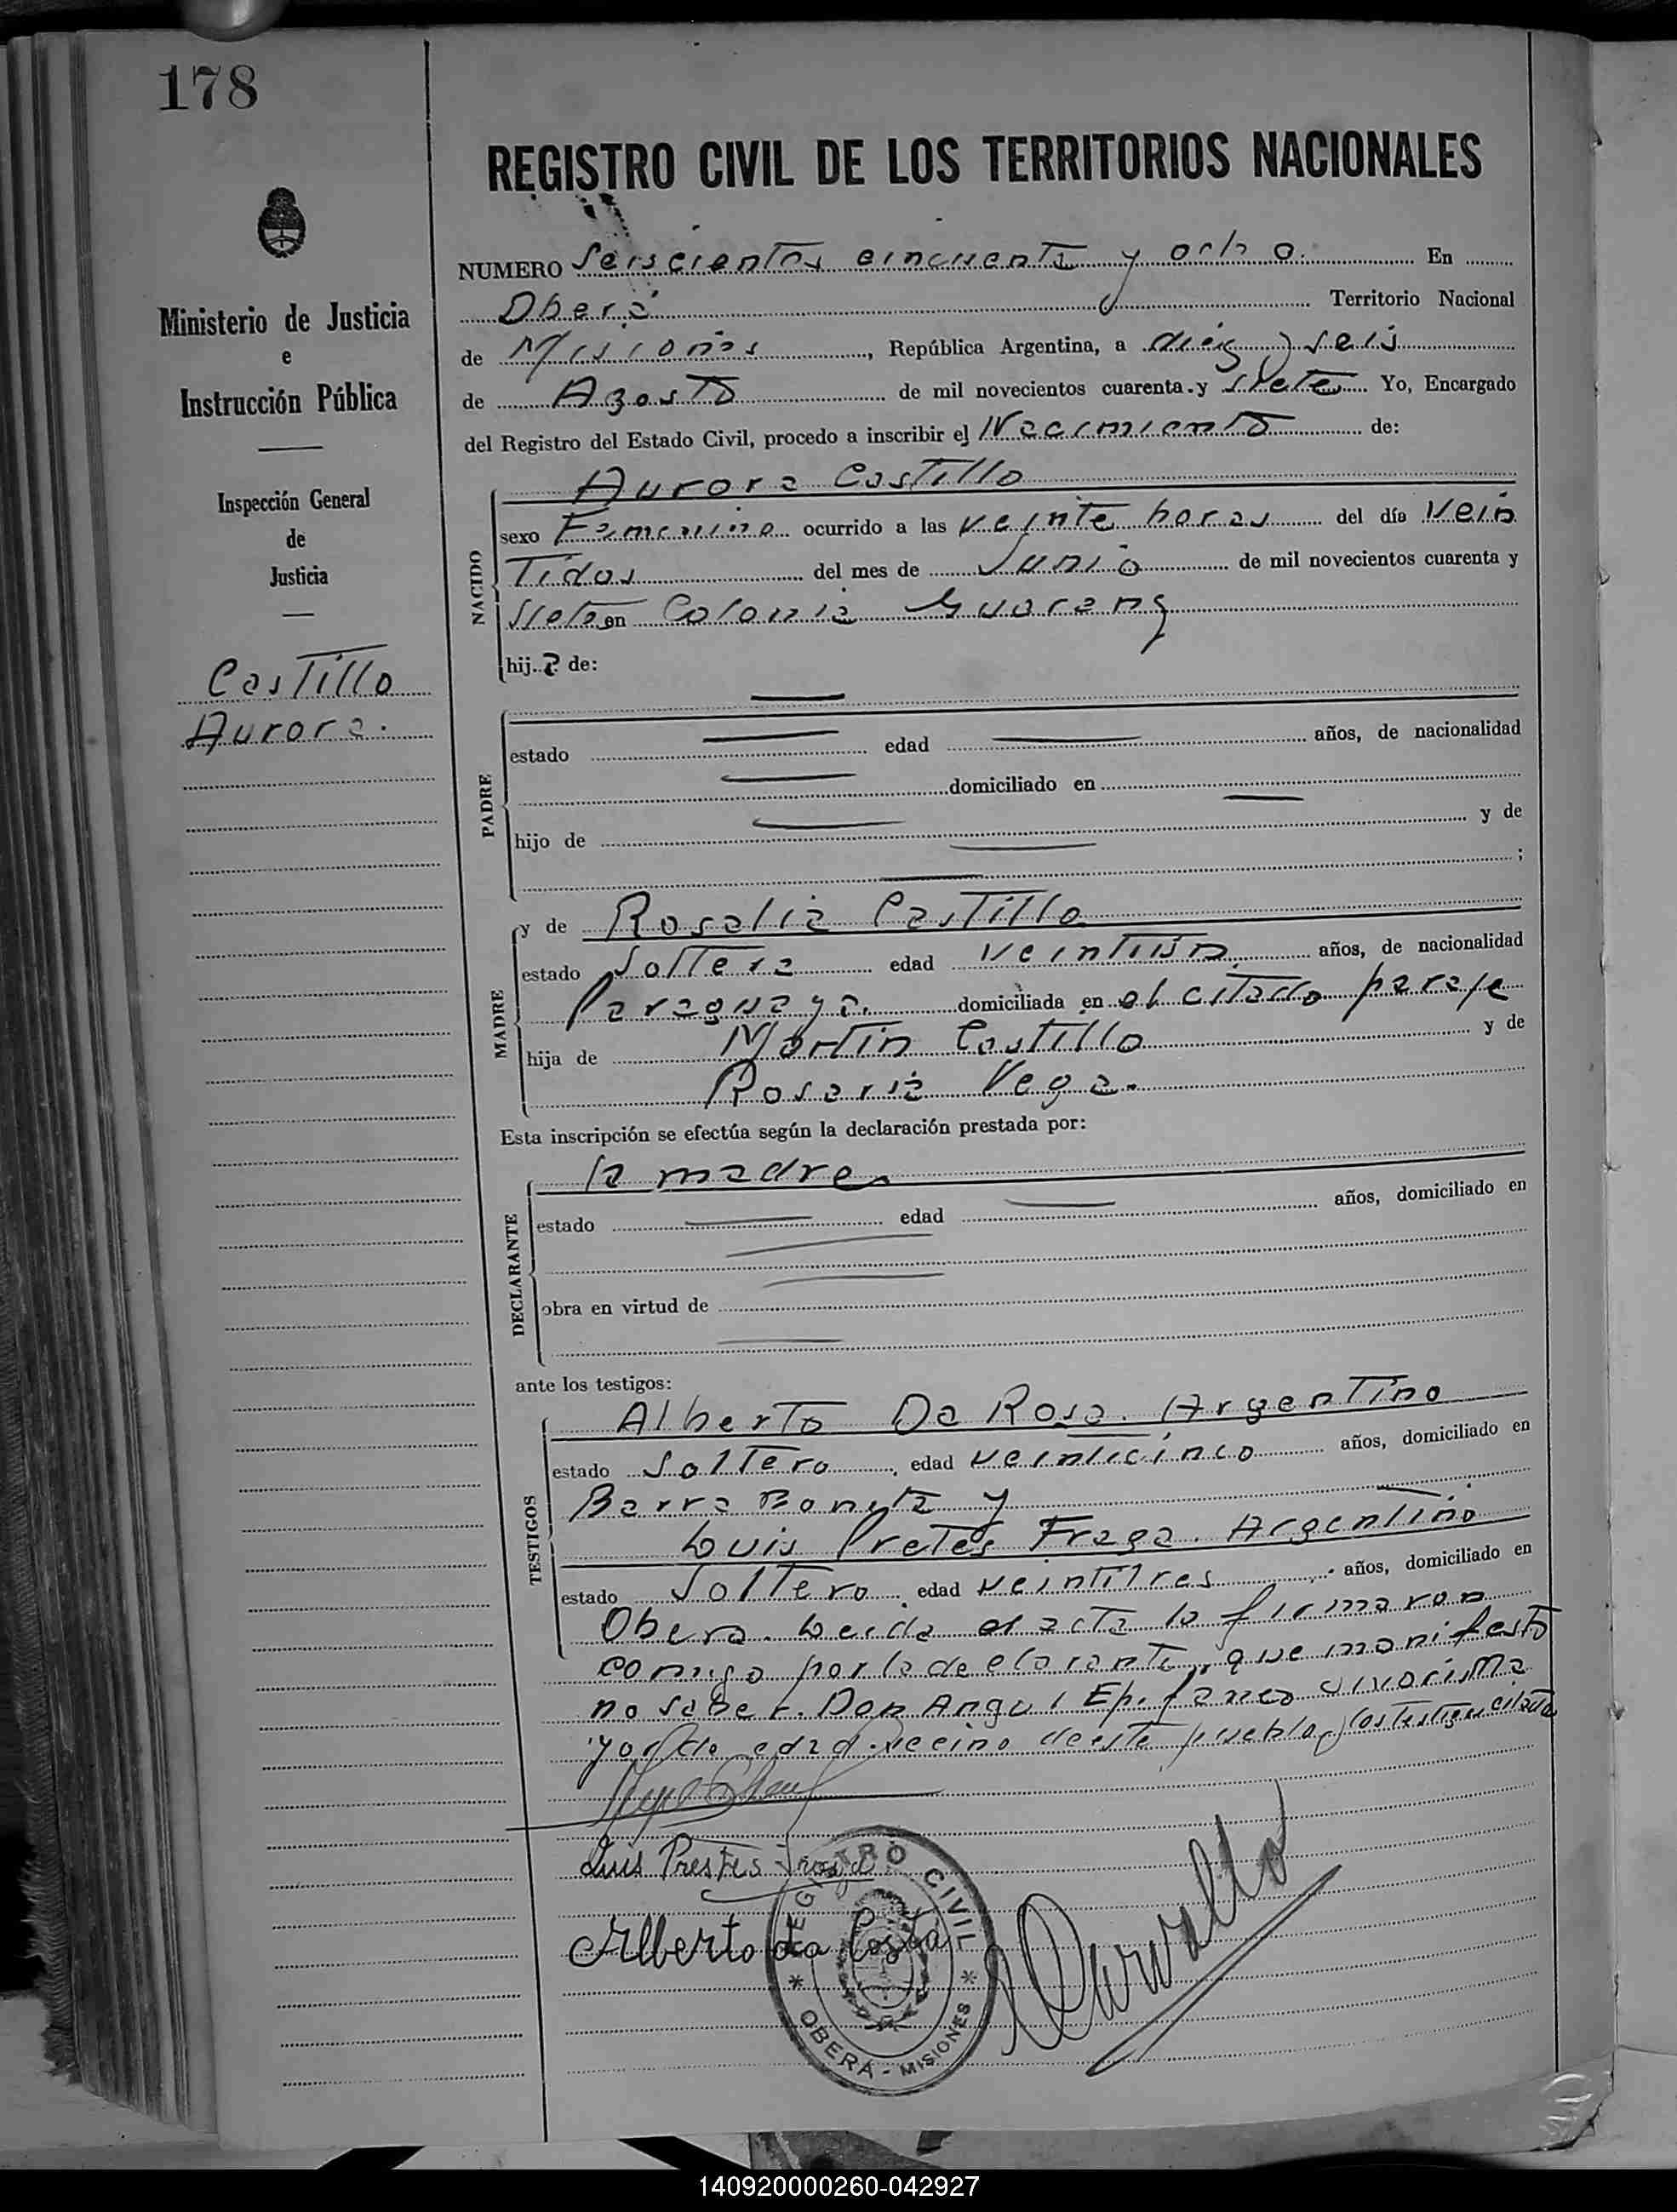 178
REGISTRO CIVIL DE LOS TERRITORIOS NACIONALES
Ministerio de Justicia
e
Instrucción Pública
Inspección General
de
Justicia
Castillo
Aurora.
NUMERO Seiscientos cincuenta y ocho. En
Oberá Territorio Nacional
de Misiones, República Argentina, a diez y seis
de Agosto de mil novecientos cuarenta y siete Yo, Encargado
del Registro del Estado Civil, procedo a inscribir el Nacimiento de:
NACIDO
Aurora Castillo
sexo Femenino ocurrido a las veinte horas del día Vein
Tidos del mes de Junio de mil novecientos cuarenta y
siete en Colonia Guarany
hij.a de:
PADRE
estado edad años, de nacionalidad
domiciliado en
hijo de y de
;
MADRE
y de Rosalia Castillo
estado Soltera edad veintiun años, de nacionalidad
Paraguaya. domiciliada en el citado paraje
hija de Martin Castillo y de
Rosaria Vega.
Esta inscripción se efectúa según la declaración prestada por:
DECLARANTE
la madre
estado edad años, domiciliado en
obra en virtud de
ante los testigos:
TESTIGOS
Alberto Da Rosa. Argentino
estado Soltero, edad veinticinco años, domiciliado en
Barra Bonita y
Luis Pretes Fraga. Argentino
estado Soltero, edad veintitres años, domiciliado en
Obera. Leida el acta la firmaron
comigo por la declarante, que manifesto
no saber. Don Epifaneo
yor de edad vecino de este pueblo y los testigos citados
Luis Prestes Fraga
Alberto da Costa
REGISTRO CIVIL
* OBERA - MISIONES *
140920000260-042927